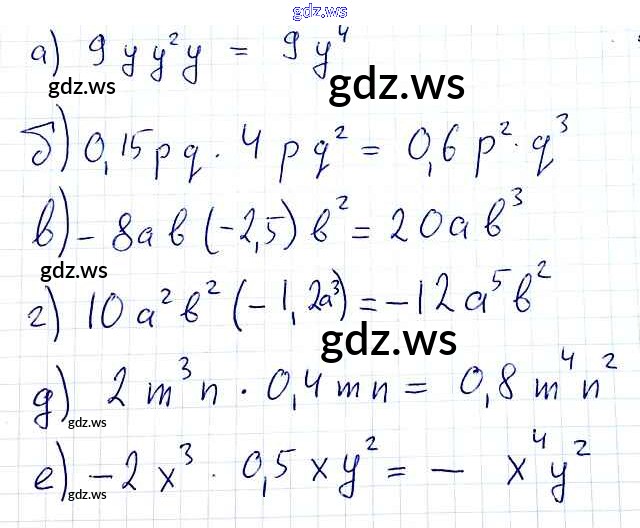 gdz.ws
а) 9yy²y = 9y⁴
gdz.ws
gdz.ws
б) 0,15pq · 4pq² = 0,6p² · q³
в) -8aв(-2,5)в² = 20aв³
gdz.ws
г) 10a²в²(-1,2a³) = -12a⁵в²
gdz.ws
д) 2m³n · 0,4mn = 0,8m⁴n²
gdz.ws
е) -2x³ · 0,5xy² = - x⁴y²
gdz.ws